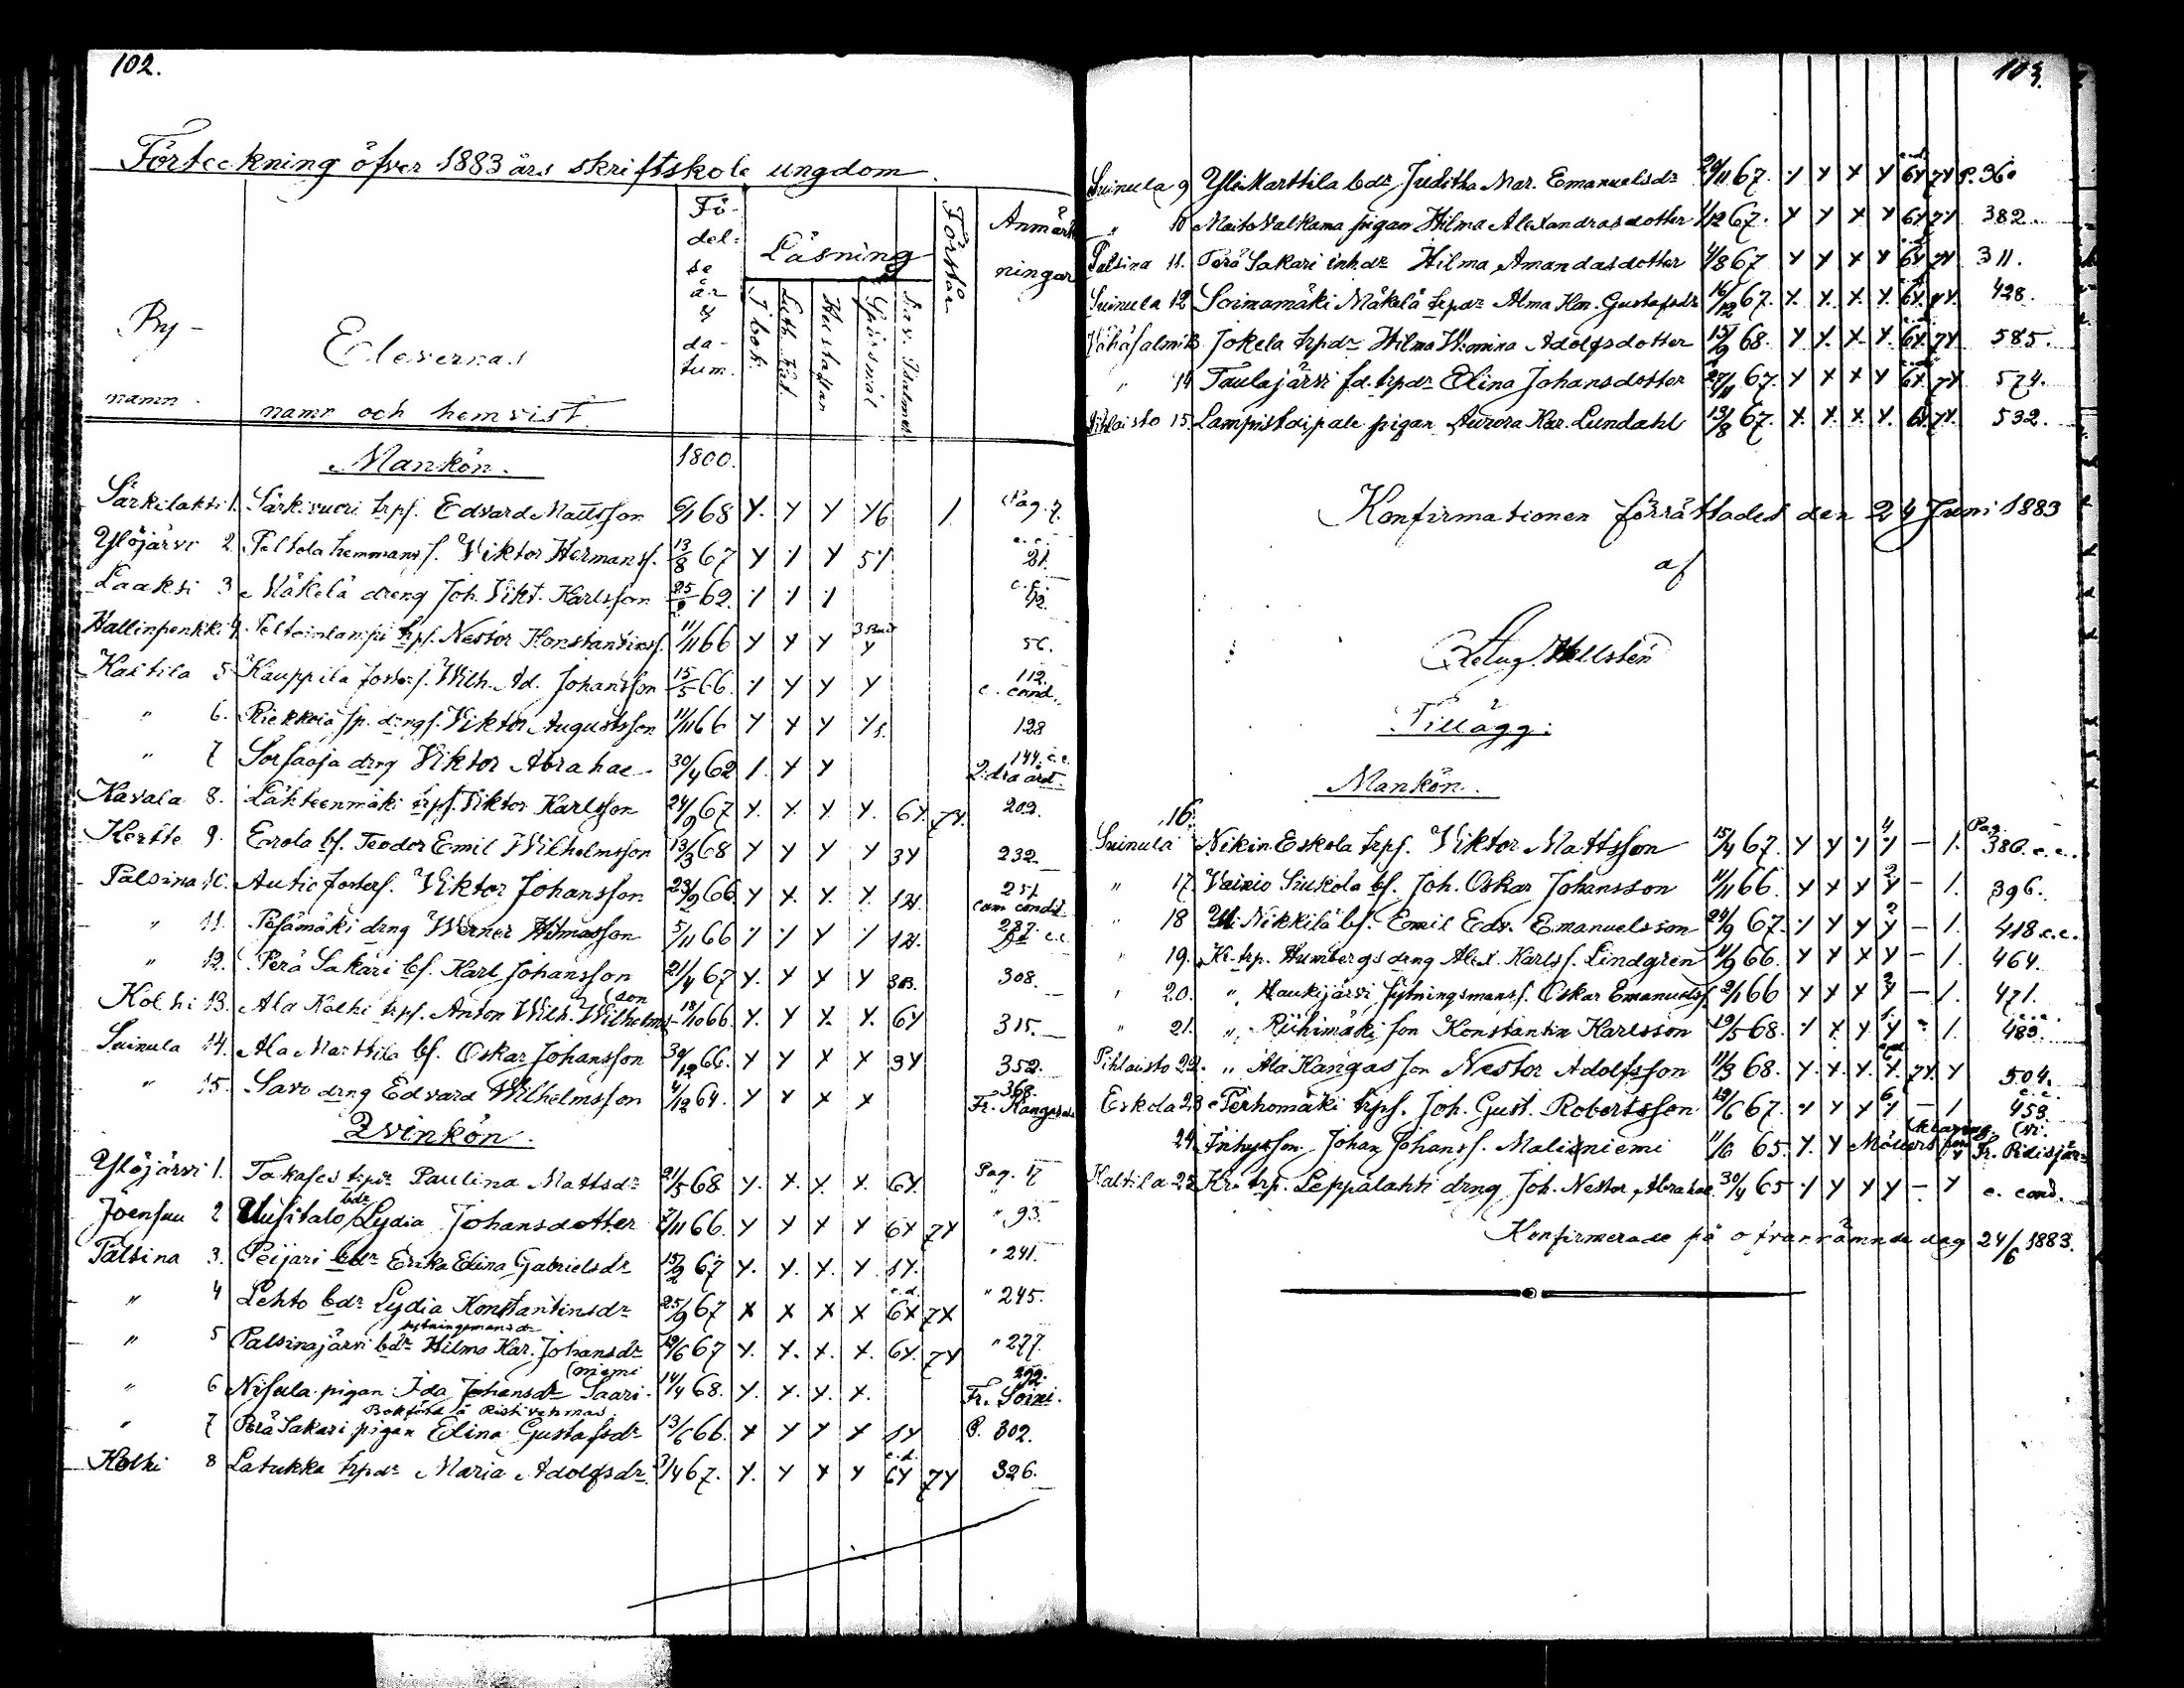 102.
Förteckning öfver 1883 års skriftskole ungdom.
By-
namn.
Elevernas
namn och hemvist
Fö-
del-
se
år
&
da-
tum.
Läsning
I bok.
Luth. Kat.
Hustaflan
Spörsmål
Dav. Psalmer
Förstår
Anmärk
ningar
Mankön. 1800.
Särkilahti 1. Särkivuori trpf. Edvard Mattsson 9/1 68 Y. Y Y Y6 1. Pag. 7.
Ylöjärvi 2 Peltola hemmans f. Viktor Hermansf. 13/8 67 Y Y Y 5Y 21.
Laaksi 3 Mäkelä dreng Joh. Vikt. Karlsson 62. Y Y Y
Hallinpenkki 4. trpf. Nestor Konstantinsf. 11/11 66 Y Y Y Y 56.
Kaitila 5 Kauppila fosterf. Wilh. Ad. Johansson 15/5 66. Y Y Y Y 112. c. cond.
" 6. sp. drngf. Viktor Augustsson 11/11 66 Y Y Y 128
" 7 Sorsaoja drng Viktor Abrahae 30/4 62 Y. Y Y 144. c.c. 2. dra året.
Kavala 8. Lähteenmäki trpf. Viktor Karlsson 24/9 67 Y. Y. Y. Y. 6Y. 7Y. 202.
Kertte 9. Erola bf. Teodor Emil Wilhelmsson 13/3 68 Y Y Y Y 3Y 232
Palsina 10. Autio fosterf. Viktor Johansson 23/9 66 Y Y. Y. Y. 1Y. 257 cum condit.
" 11. Pesämäki drng Werner Hilmasson 5/11 66 Y Y Y Y 1Y. 287. c.c.
" 12. Perä Sakari bf. Karl Johansson 21/4 67 Y Y Y Y 3B. 308.
Kolhi 13. Ala Kolhi trpf. Anton Wilh. Wilhelms(son 18/10 66. Y. Y. Y. Y. 6Y 315.
Suinula 14. Ala Marttila bf. Oskar Johansson 30/12 66. Y Y Y Y 3Y 352.
" 15. Savo drng Edvard Wilhelmsson 4/12 64. Y Y Y Y 368. Fr. Kangasala
Qvinkön.
Ylöjärvi 1. Takases trpdr Paulina Mattsdr 21/5 68 Y. Y. Y. Y. 6Y. Pag. 17
Joensuu 2 Uusitalo bdr Lydia Johansdotter 7/11 66 Y Y Y Y 6Y 7Y " 93.
Palsina 3. Peijari bdr Erika Elina Gabrielsdr 15/2 67 Y. Y. Y. Y. 5Y. " 241.
" 4 Lehto bdr Lydia Konstantinsdr 25/9 67 X X X X c.d. 6X 7X " 245.
sytningsmansdr
" 5 Palsinajärvi bdr Hilma Kar. Johansdr 19/6 67 Y. Y. Y. Y. 6Y. 7Y " 277.
" 6 Nisula pigan Ida Johansdr Saari-(niemi 14/4 68. Y. Y. Y. Y. 299. Fr. Soini.
Bokförd å Ristivehmas
" 7 Perä Sakari pigan Elina Gustafsdr 13/6 66. Y Y Y Y 5Y P. 302.
Kolhi 8 Latukka trpdr Maria Adolfsdr 3/4 67. Y. Y Y Y c.d. 6Y 7Y 326.
103.
Suinula 9 Yli Marttila bdr Juditha Mar. Emanuelsdr 20/11 67. Y Y Y Y 6Y 7Y P. 360
" 10 Maito Valkama pigan Hilma Alexandrasdotter 1/12 67. Y Y Y Y 6Y 7Y 382.
Palsina 11. Perä Sakari inhdr Hilma Amandasdotter 4/8 67 Y Y Y Y 6Y 7Y 311.
Suinula 12 Soimamäki Mäkelä trpdr Alma Hen. Gustafsdr 16/12 67. Y. Y. Y. Y. 6Y. 7Y. 428.
Vähäsalmi 13 Jokela trpdr Hilma Wemina Adolfsdotter 15/9 68. Y Y. Y. Y. 6Y. 7Y. 585.
" 14 Taulajärvi fd. trpdr Elina Johansdotter 27/11 67. Y Y Y Y 6Y. 7Y 574.
Pihlaisto 15. Lampistaipale pigan Aurora Kar. Lundahl 13/8 67. Y. Y. Y. Y. 6Y. 7Y. 532.
Konfirmationen förrättades den 24 Juni 1883
af
Aug. Hellstén
Tillägg:
Mankön.
Suinula 16. Nikin Eskola trpf. Viktor Mattsson 15/4 67. Y Y Y Y 4 – 1. Pag. 386. c.c.
" 17. Vainio Siukola bf. Joh. Oskar Johansson 11/11 66. Y Y Y Y 2 – 1. 396.
" 18 Yli Nikkilä bf. Emil Edv. Emanuelsson 24/9 67. Y Y Y Y 2 – 1. 418 c.c.
" 19. Kr. trp. Humbergs drng Alex. Karlsf. Lindgren 11/9 66. Y Y Y Y – 1. 464.
" 20. " Haukijärvi sytningsmansf. Oskar Emanuelsf. 2/1 66 Y Y Y Y – 1. 471.
" 21. " Riihimäki son Konstantin Karlsson 19/5 68. Y Y. Y Y – 1. c.c. 489.
Pihlaisto 22. " Ala Kangas son Nestor Adolfsson 11/3 68. Y. Y. Y. Y. 7Y. Y 504.
Eskola 23 Perhomäki trpf. Joh. Gust. Robertsson 19/6 67. Y Y Y Y 6 – 1 c.c. 453.
24. Inhysson Johan Johansf. Malinniemi 11/6 65. Y. Y Fr. Pidisjär-(vi.
Kaltila 25 Kr. trp. Leppälahti drng Joh. Nestor Abrahae 30/4 65 Y Y Y Y – Y c. cond.
Konfirmerade på ofvannämnde dag 24/6 1883.